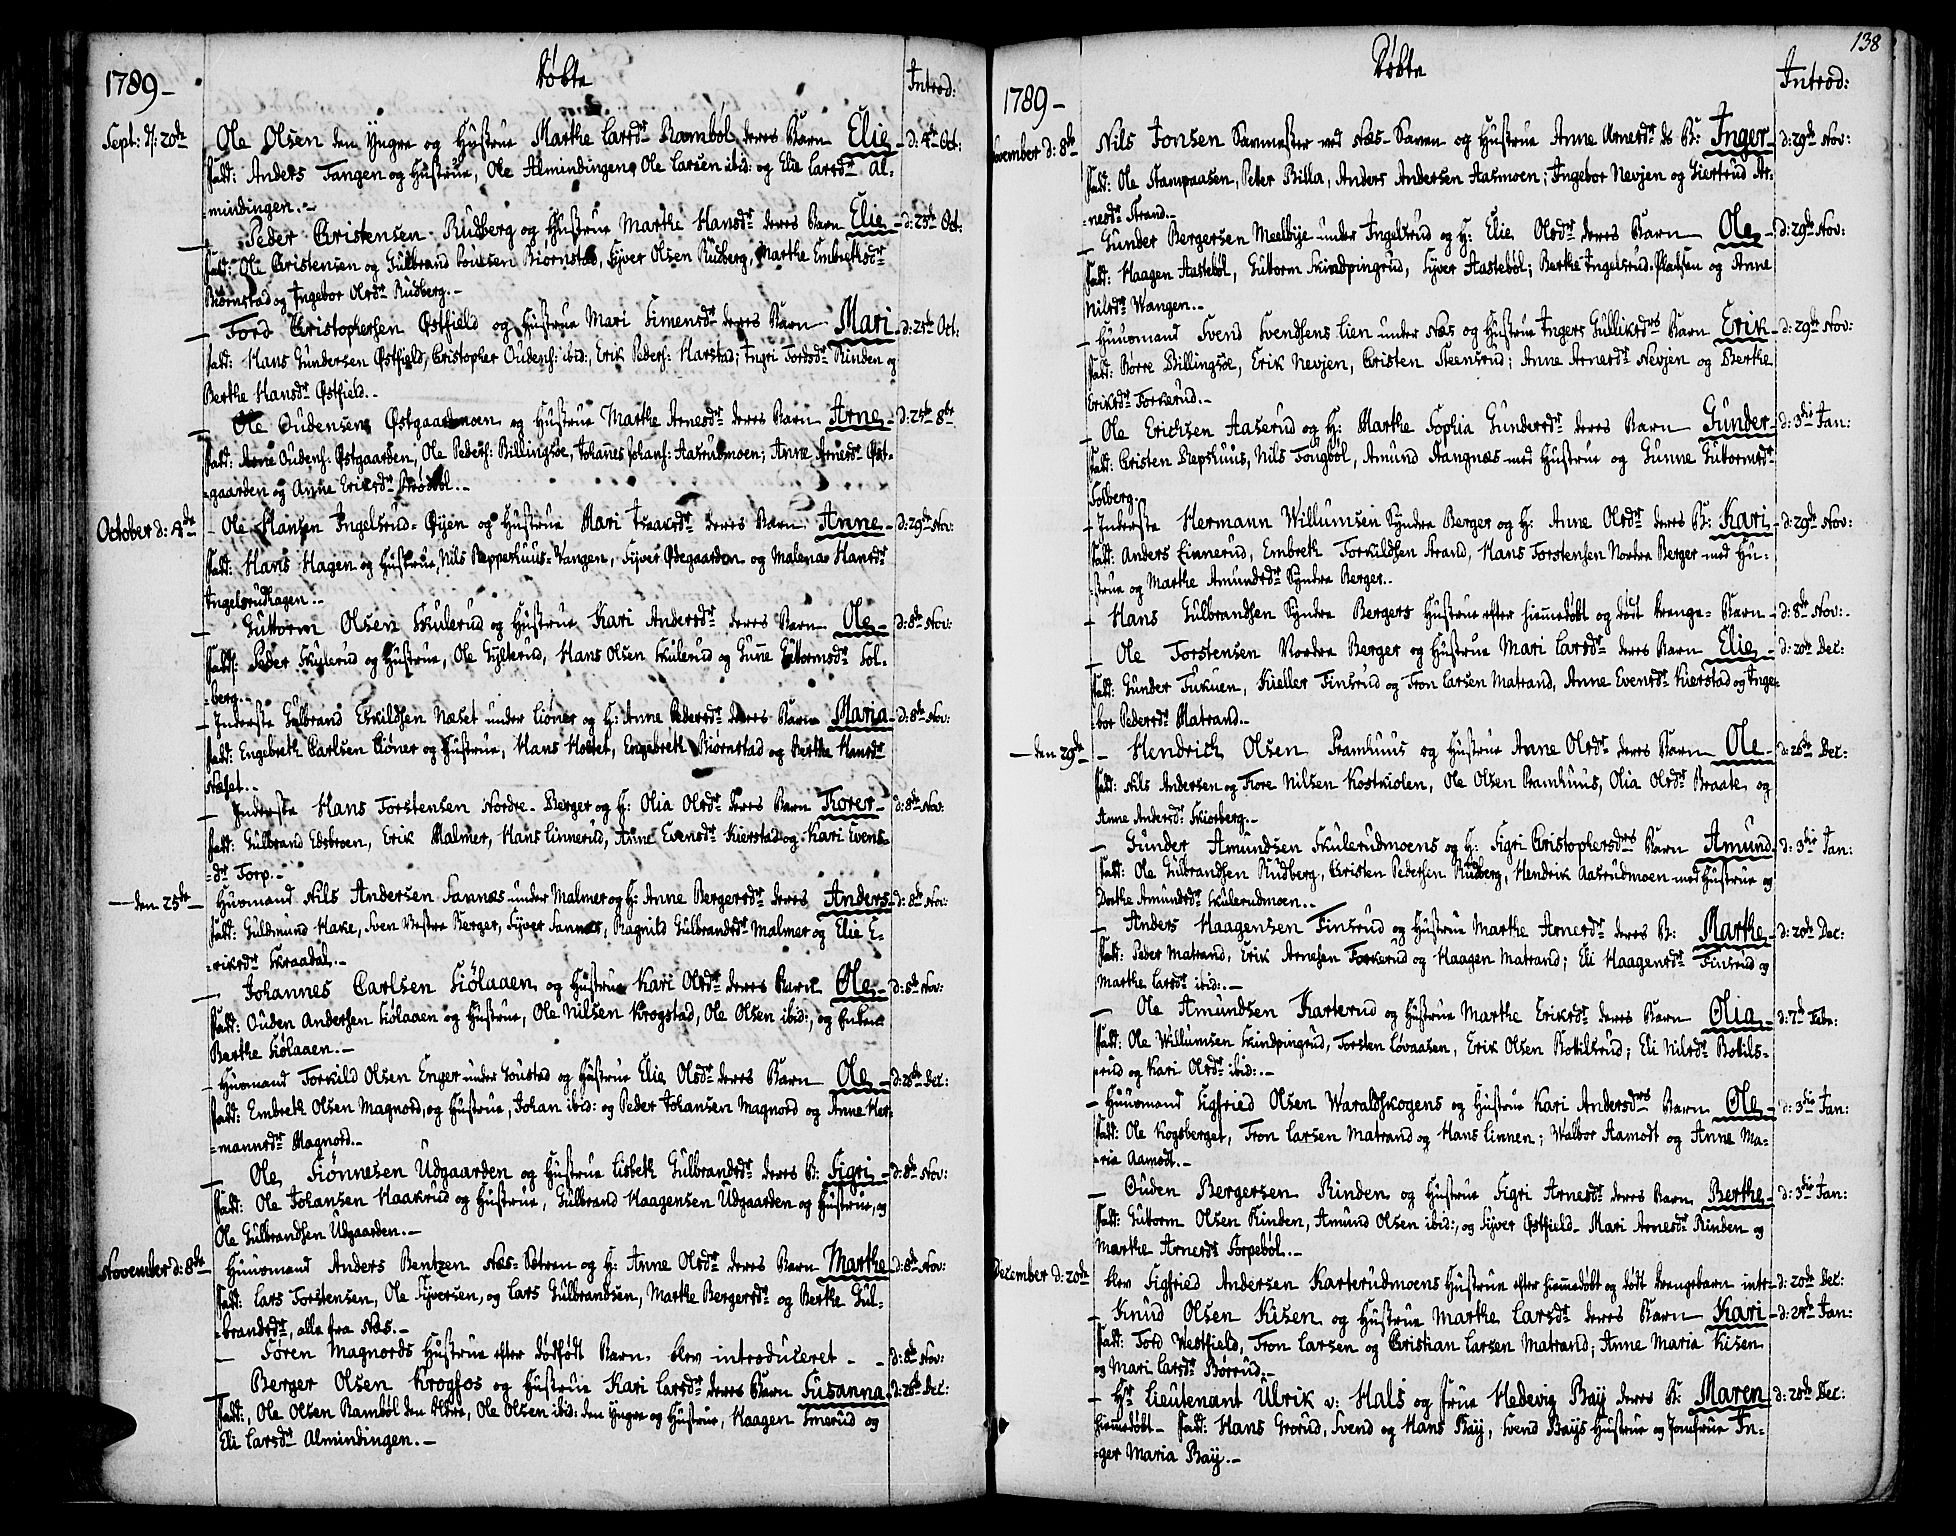 1789 –
Døbte
Introd:
Sept: d: 20de
Ole Olsen den Yngre og Hustrue Marthe Larsdr Rambøl deres Barn Elie – d: 4de Oct:
Fadd: Anders Tangen og Hustrue, Ole Almindingen, Ole Larsen ibid: og Elie Larsdr Al-
=mindingen. –
– Peder Christensen Rudberg og Hustrue Marthe Hansdr deres Barn Elie – d: 25de Oct:
Fadd: Ole Christensen og Gulbrand Biørnstad, Syver Olsen Rudberg, Marthe Embrethsdr
Biørnstad og Ingebor Olsdr Rudberg. –
– Tord Christophersen Østfield og Hustrue Mari Simensdr deres Barn Mari – d: 25de Oct:
Fadd: Hans Gundersen Østfield, Christopher Oudens: ibid:, Erik Peders: Harstad; Ingri Tordsdr Rinden og
Berthe Hansdr Østfield. –
– Ole Oudensen Østgaardmoen og Hustrue Marthe Arnesdr deres Barn Arne – d: 25de 8br
Fadd: Arne Oudens: Østgaarden, Ole Peders: Billingsøe, Johannes Johans: Aasrudmoen; Anne Arnesdr Øst-
=gaarden og Anne Eriksdr –
October d: 4de – Ole Hansen Ingelsrud-Øyen og Hustrue Mari Isaaksdr deres Barn Anne – d: 29de Nov:
Fadd: Hans Hagen og Hustrue, Nils Reppehuus-Vangen, Syver Ødegaarden og Malena Hansdr
Ingelsrudhagen. –
– Guttorm Olsen Skulerud og Hustrue Kari Andersdr deres Barn Ole – d: 8de Nov:
Fadd: Peder Skulerud og Hustrue, Ole Gylterud, Hans Olsen Skulerud og Gunne Guttormsdr Sol-
=berg. –
– Inderste Gulbrand Eskildsen Næset under Liøner og H: Anne Pedersdr deres Barn Maria – d: 8de Nov:
Fadd: Engebreth Carlsen Liøner og Hustrue, Hans Holtet, Engebreth Biørnstad og Berthe Hansdr
Næset. –
– Inderste Hans Torstensen Nordre-Berger og H: Olia Olsdr deres Barn Torer – d: 8de Nov:
Fadd: Gulbrand Edsbroen, Erik Malmer, Hans Linnerud, Anne Evensdr Kierstad og Kari Evens-
=dr Torp. –
– den 25de – Huusmand Nils Andersen Sannæs under Malmer og H: Anne Bergersdr deres Anders – d: 8de Nov:
Fadd: Guldmund Hake, Sven Vestre Berger, Syver Sannæs, Ragnild Gulbrandsdr Malmer og Elie E-
=riksdr Skraadal. –
– Johannes Carlsen Siølaaen og Hustrue Kari Olsdr deres Barn Ole – d: 8de Nov:
Fadd: Ouden Andersen Siølaaen og Hustrue, Ole Nilsen Krogstad, Ole Olsen ibid:, og Enken
Berthe Siølaaen. –
– Huusmand Torkild Olsen Enger under Joustad og Hustrue Elie Olsdr deres Barn Ole – d: 26de Dec:
Fadd: Embreth Olsen Magnord, og Hustrue, Johan ibid: og Peder Johansen Magnord og Anne Her-
=mannsdr Magnord. –
– Ole Siønnesen Udgaarden og Hustrue Lisbeth Gulbrandsdr deres B: Sigri – d: 8de Nov:
Fadd: Ole Johansen Haakrud og Hustrue, Gulbrand Haagensen Udgaarden og Hustrue, og
Ole Gulbrandsen Udgaarden. –
November d: 8de – Huusmand Anders Bentzen Næs-Sætren og H: Anne Olsdr deres Barn Marthe – d: 8de Nov:
Fadd: Lars Torstensen, Ole Syversen, og Lars Gulbrandsen, Marthe Bergersdr og Berthe Gul-
=brandsdr, alle fra Næs. –
– Søren Magnords Hustrue efter dødfødt Barn blev introduceret – – d: 8de Nov:
– Berger Olsen Krogfos og Hustrue Kari Larsdr deres Barn Susanna – d: 26de Dec:
Fadd:, Ole Olsen Rambøl den Ældre, Ole Olsen ibid: den Yngre og Hustrue, Haagen Smerud og
Eli Larsdr Almindingen. –
138
1789 –
Døbte
Introd:
November d: 8de – Nils Jonsen Saumester ved Næs-Sauen og Hustrue Anne Arnesdr ds B: Inger – d: 29de Nov:
Fadd: Ole Stampaasen, Peter Billa, Anders Andersen Aasmoen; Ingebor Nevjen og Siertrud Ar-
=nesdr Strand. –
– Gunder Bergersen Meelbye under Ingelsrud og H: Elie Olsdr deres Barn Ole – d: 29de Nov:
Fadd: Haagen Aastebøl, Guttorm Skindpingrud, Syver Aastebøl; Berthe Ingelsrud-Pladsen og Anne
Nilsdr Wangen. –
– Huusmand Svend Svendsens Lien under Næs og Hustrue Ingers Gulliksdrs Barn Erik – d: 29de Nov:
Fadd: Børre Billingsøe, Erik Nevjen, Christen Steensrud; Anne Arnesdr Nevjen og Berthe
Eriksdr Torkerud. –
– Ole Erichsen Aaserud og H: Marthe Sophia Gundersdr deres Barn Gunder – d: 3die Jan:
Fadd: Christen Repshuus, Nils Tongbøl, Amund Stangnæs med Hustrue og Gunne Guttormsdr
Solberg.
– Inderste Hermann Willumsen Syndre Berger og H: Anne Olsdr deres B: Kari – d: 29de Nov:
Fadd: Anders Linnerud, Embreth Torkildsen Strand, Hans Torstensen Nordre Berger med Hu-
=strue og Marthe Amundsdr Syndre Berger. –
– Hans Gulbrandsen Syndre Bergers Hustrue efter hiemmedøbt og dødt Drenge-Barn – d: 8de Nov: –
– Ole Torstensen Nordre Berger og Hustrue Mari Larsdr deres Barn Elie – d: 20de Dec:
Fadd: Gunder Tukuen, Kieller Finsrud og Tron Larsen Matrand, Anne Evensdr Kierstad og Inge-
bor Pedersdr Matrand. –
– den 29de – Hendrich Olsen Pramhuus og Hustrue Anne Olsdr deres Barn Ole – d: 26de Dec:
Fadd: Nils Andersen og Tore Nilsen Kostkiolen, Ole Olsen Pramhuus, Olia Olsdr Braate og
Anne Andersdr Skiørberg. –
– Gunder Amundsen Skulerudmoens og H: Sigri Christophersdrs Barn Amund – d: 3die Jan:
Fadd: Ole Gulbrandsen Rudberg, Christen Pedersen Rudberg, Hendrik Aasrudmoen med Hustrue og
Dorthe Amundsdr Skulerudmoen. –
– Anders Haagensen Finsrud og Hustrue Marthe Arnesdr deres B: Marthe – d: 20de Dec:
Fadd: Peder Matrand, Erik Arnesen Torkerud og Haagen Matrand; Eli Haagensdr Finsrud og
Marthe Larsdr ibid:. –
– Ole Amundsen Karterud og Hustrue Marthe Eriksdr deres Barn Olia – d: 7de Febr:
Fadd: Ole Willumsen Skindpingrud, Torsten Løvaasen, Erik Olsen Botilsrud; Eli Nilsdr Botils-
=rud og Kari Olsdr ibid:. –
– Huusmand Sigfried Olsen Waraldskogens og Hustrue Kari Andersdrs Barn Ole – d: 3die Jan:
Fadd: Ole Kogsberget, Tron Larsen Matrand og Hans Linnen; Walbor Aamodt og Anne Ma-
=ria Aamodt. –
– Ouden Bergersen Rinden og Hustrue Sigri Arnesdr deres Barn Berthe – d: 3die Jan:
Fadd: Guttorm Olsen Rinden, Amund Olsen ibid:, og Syver Østfield – Mari Arnesdr Rinden og
Marthe Arnesdr Torpebøl. –
December d: 20de – blev Sigfried Andersen Karterudmoens Hustrue efter hiemmedøbt og dødt Drengebarn intr – d: 20de Dec:
– Knud Olsen Kisen og Hustrue Marthe Larsdr deres Barn Kari – d: 24de Jan:
Fadd: Tord Westfield, Tron Larsen og Christian Larsen Matrand; Anne Maria Kisen
og Mari Larsdr Børrud. –
– Hr Lieutenant Ulrik v: Hals og Frue Hedevig Bay deres B: Maren – d: 20de Dec:
hiemmedøbt – Fadd: Hans Grorud, Svend og Hans Bay, Svend Bays Hustrue og Jomfrue In-
=ger Maria Bay. –